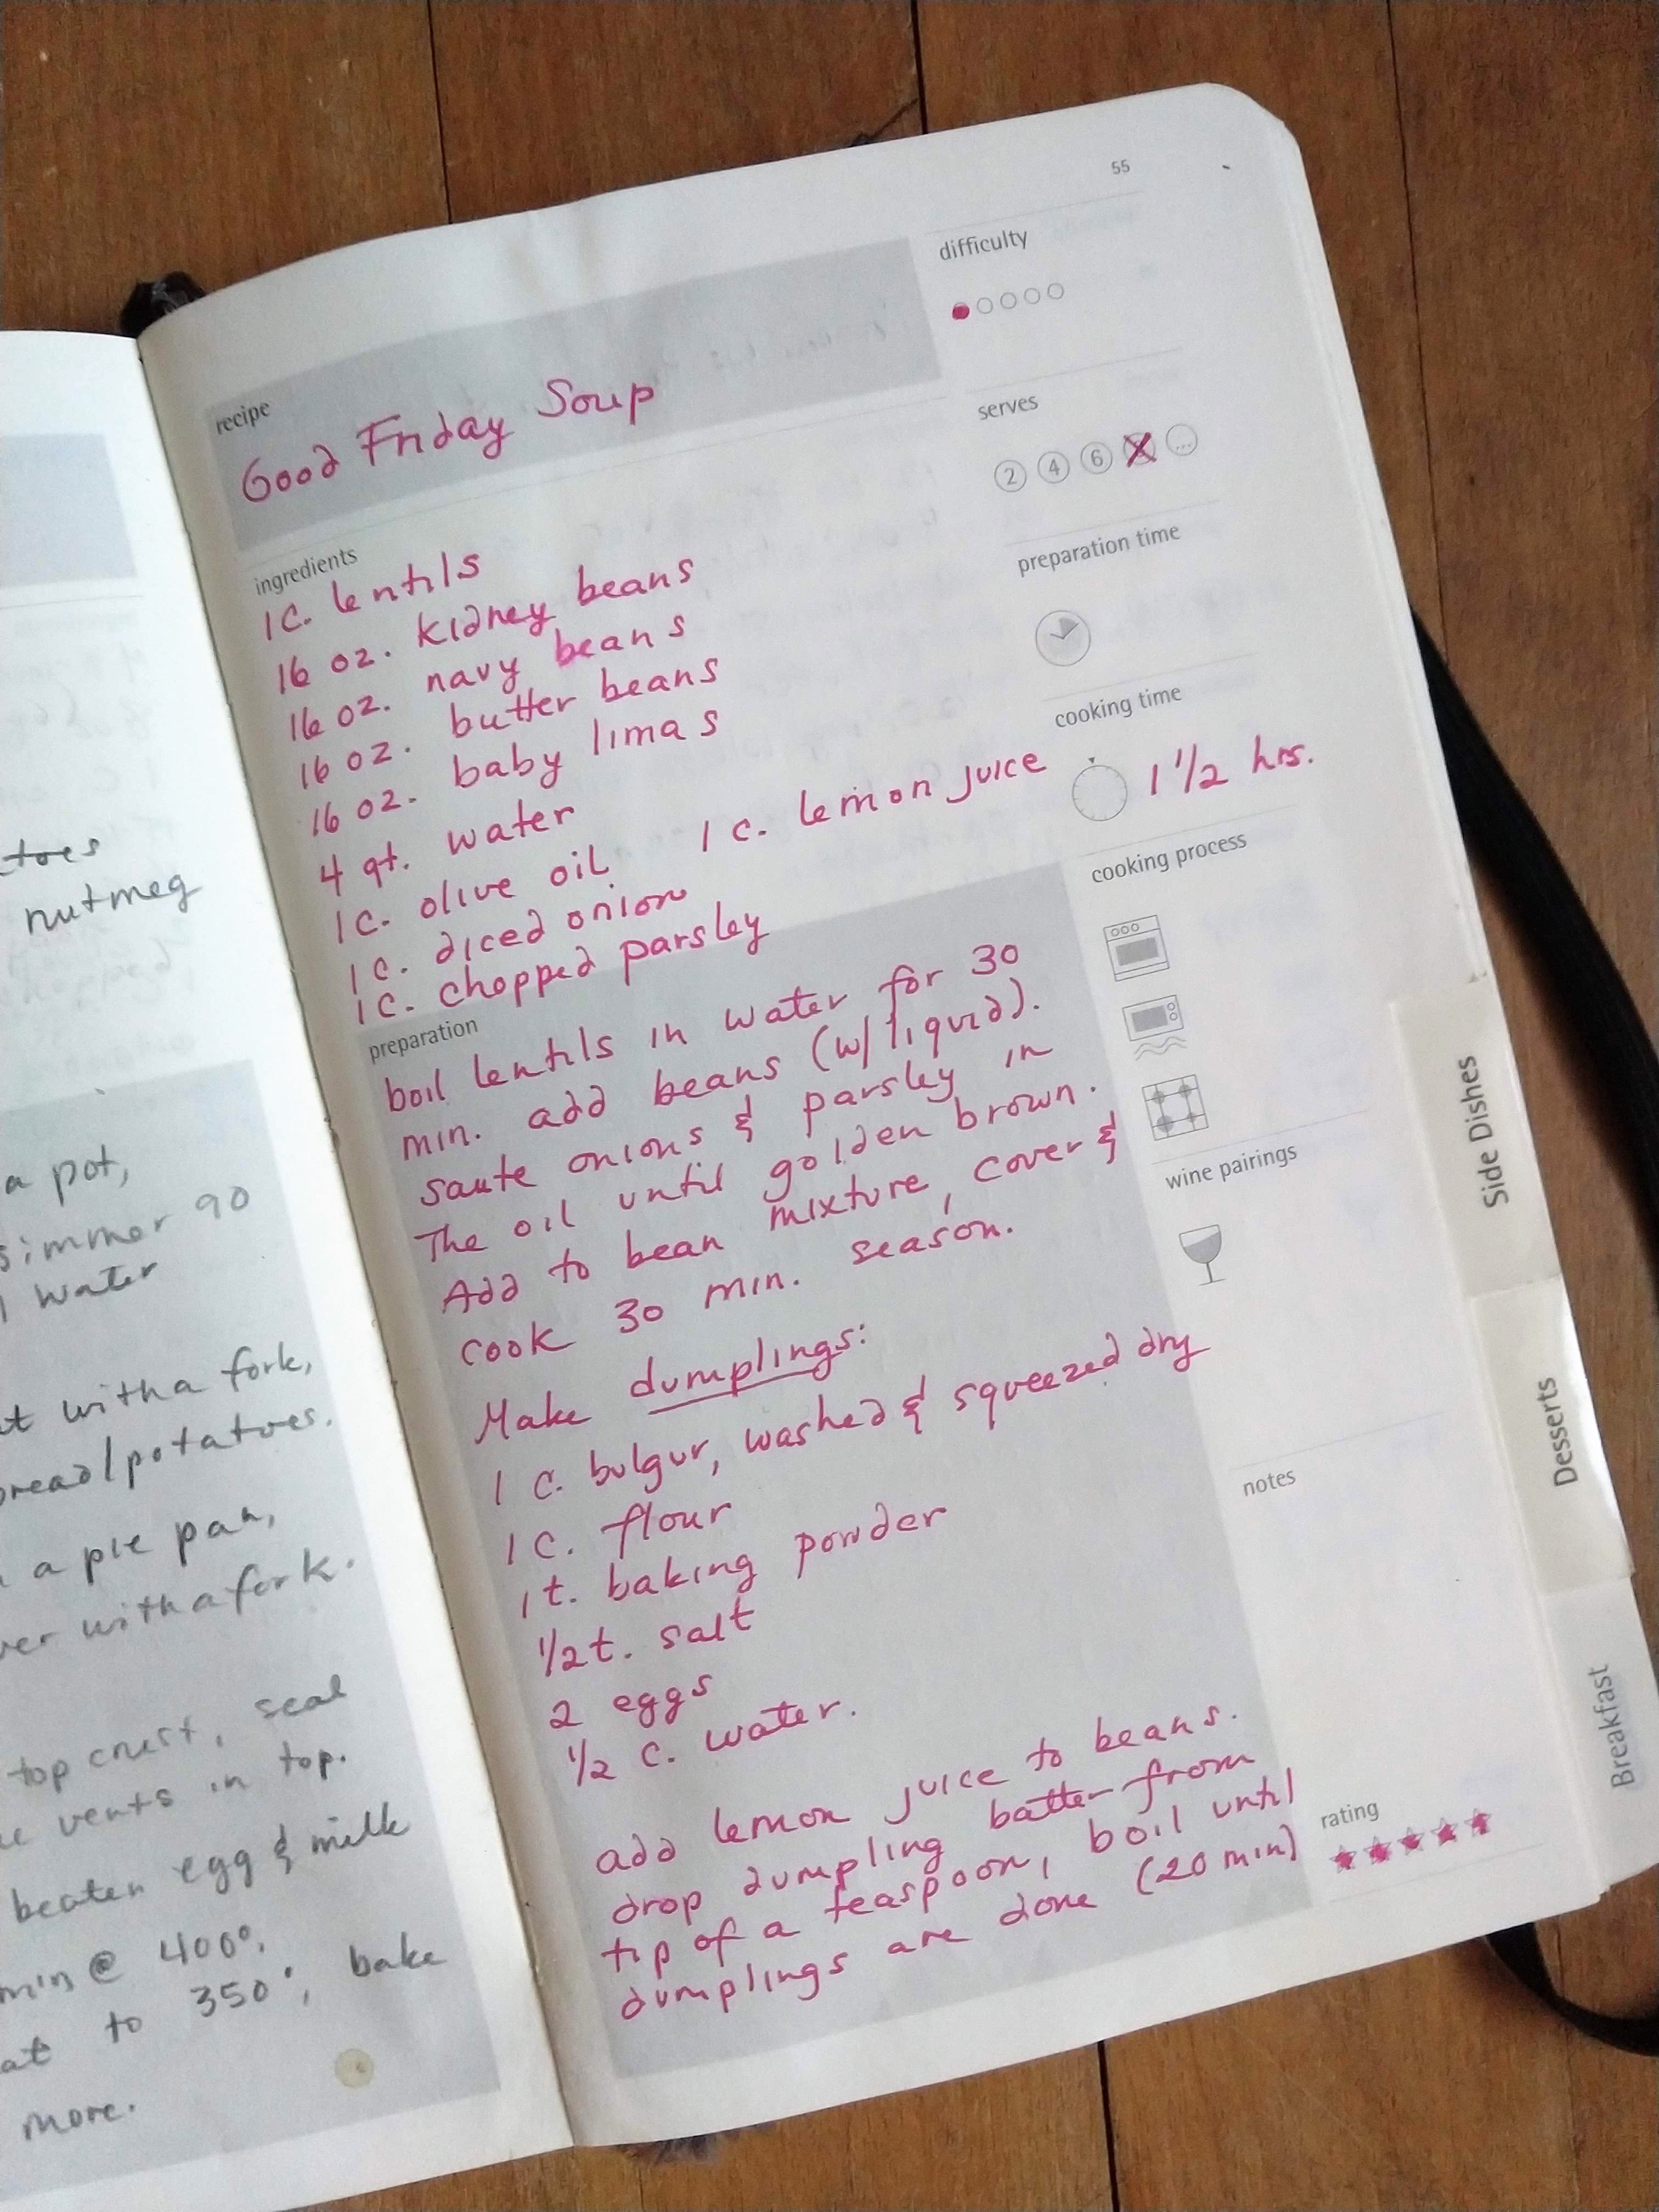 toes
nutmeg
a pot,
simmer 90
water
with a fork,
bread/potatoes.
a pie pan,
with a fork.
top crust, seal
vents in top.
beaten egg & milk
min @ 400°.
to 350°, bake
more.
55
recipe
Good Friday Soup
difficulty
serves
2 4 6 ...
ingredients
1 C. lentils
16 oz. kidney beans
16 oz. navy beans
16 oz. butter beans
16 oz. baby limas
4 qt. water
1 C. olive oil 1 C. lemon juice
1 C. diced onion
1 C. chopped parsley
preparation time
cooking time
1 1/2 hrs.
cooking process
wine pairings
notes
rating
preparation
boil lentils in water for 30
min. add beans (w/ liquid).
saute onions & parsley in
The oil until golden brown.
Add to bean mixture, cover &
cook 30 min. season.
Make dumplings:
1 C. bulgur, washed & squeezed dry
1 C. flour
1 t. baking powder
1/2 t. salt
2 eggs
1/2 C. water.
add lemon juice to beans.
drop dumpling batter from
tip of a teaspoon, boil until
dumplings are done (20 min)
Side Dishes
Desserts
Breakfast